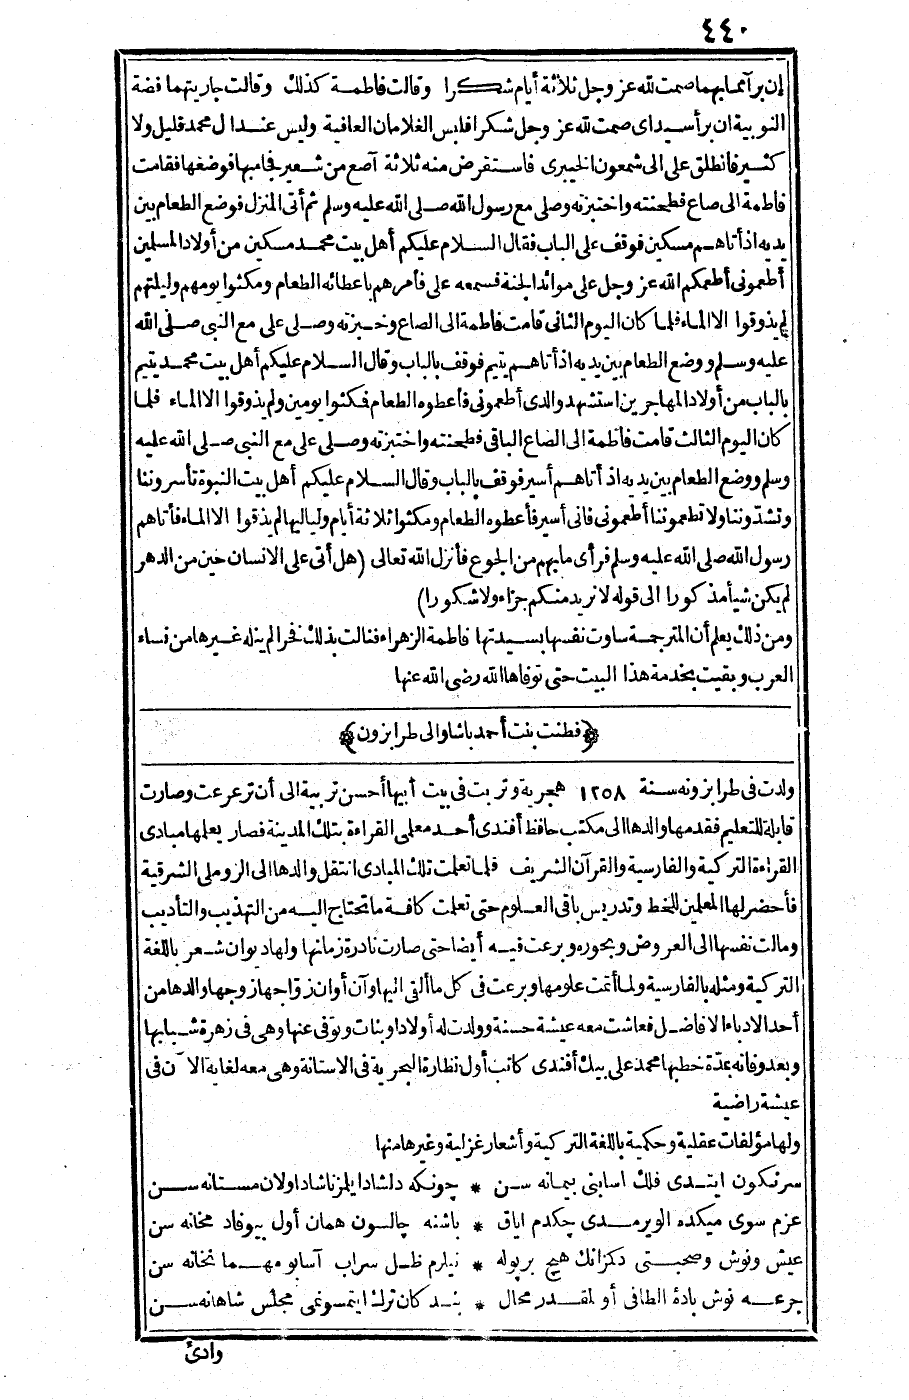 ٤٤٠
إن برآ مما بهما صمت لله عز وجل ثلاثة أيام شكرا وقالت فاطمة كذلك وقالت جاريتهما فضة
النوبية ان برأ سيداى صمت لله عز وجل شكرا فلبس الغلامان العافية وليس عند ال محمد قليل ولا
كثير فانطلق على الى شمعون الخيبرى فاستقرض منه ثلاثة آصع من شعير فجاء بها فوضعها فقامت
فاطمة الى صاع فطحنته واختبزته وصلى مع رسول الله صلى الله عليه وسلم ثم أتى المنزل فوضع الطعام بين
يديه اذ أتاهم مسكين فوقف على الباب فقال السلام عليكم أهل بيت محمد مسكين من أولاد المسلمين
أطعمونى أطعمكم الله عز وجل على موائد الجنة فسمعه على فأمرهم باعطائه الطعام ومكثوا يومهم وليلتهم
لم يذوقوا الا الماء فلما كان اليوم الثانى قامت فاطمة الى الصاع وخبزته وصلى على مع النبى صلى الله
عليه وسلم ووضع الطعام بين يديه اذ أتاهم يتيم فوقف بالباب وقال السلام عليكم أهل بيت محمد يتيم
بالباب من أولاد المهاجرين استشهد والدى أطعمونى فأعطوه الطعام فمكثوا يومين ولم يذوقوا الا الماء فلما
كان اليوم الثالث قامت فاطمة الى الصاع الباقى فطحنته واختبزته وصلى على مع النبى صلى الله عليه
وسلم ووضع الطعام بين يديه اذ أتاهم أسير فوقف بالباب وقال السلام عليكم أهل بيت النبوة تأسروننا
وتشدوننا ولا تطعموننا أطعمونى فانى أسير فأعطوه الطعام ومكثوا ثلاثة أيام ولياليها لم يذقوا الا الماء فأتاهم
رسول الله صلى الله عليه وسلم فرأى ما بهم من الجوع فأنزل الله تعالى (هل أتى على الانسان حين من الدهر
لم يكن شيأ مذكورا الى قوله لا نريد منكم جزاء ولا شكورا)
ومن ذلك يعلم أن المترجمة ساوت نفسها بسيدتها فاطمة الزهراء فنالت بذلك فخرا لم ينله غيرها من نساء
العرب وبقيت بخدمة هذا البيت حتى توفاها الله رضى الله عنها
﴿فطنت بنت أحمد باشا والى طرابزون﴾
ولدت فى طرابزونه سنة ١٢٥٨ هجرية وتربت فى بيت أبيها أحسن تربية الى أن ترعرعت وصارت
قابلة للتعليم فقدمها والدها الى مكتب حافظ أفندى أحد معلمى القراءة بتلك المدينة فصار يعلمها مبادى
القراءة التركية والفارسية والقرآن الشريف فلما تعلمت تلك المبادى انتقل والدها الى الروملى الشرقية
فأحضر لها المعلمين للخط وتدريس باقى العلوم حتى تعلمت كافة ما تحتاج اليه من التهذيب والتأديب
ومالت نفسها الى العروض وبحوره وبرعت فيه أيضا حتى صارت نادرة زمانها ولها ديوان شعر باللغة
التركية ومثله بالفارسية ولما أتمت علومها وبرعت فى كل ما ألقى اليها وآن أوان زواجها زوجها والدها من
أحد الادباء الافاضل فعاشت معه عيشة حسنة وولدت له أولادا وبنات وتوفى عنها وهى فى زهرة شبابها
وبعد وفاته بمدّة خطبها محمد على بيك أفندى كاتب أول نظارة البحرية فى الاستانة وهى معه لغاية الآن فى
عيشة راضية
ولها مؤلفات عقلية وحكمية باللغة التركية وأشعار غزلية وغيرها منها
سرنكون ايتدى فلك اسابنى پيمانه سن * چونكه دلشاد ايلمز ناشاد اولان مستانه سن
عزم سوى ميكده الويرمدى چكدم اياق * باشنه چالسون همان أول بيوفاد مخانه سن
عيش ونوش وصحبتى دكمزانك هيچ برپوله * نيلرم ظل سراب آسابو مهما نخانه سن
جرعه نوش بادهٔ الطافى أو لمقدر محال * بند كان ترك ايتمسونمى مجلس شاهانه سن
وادئ